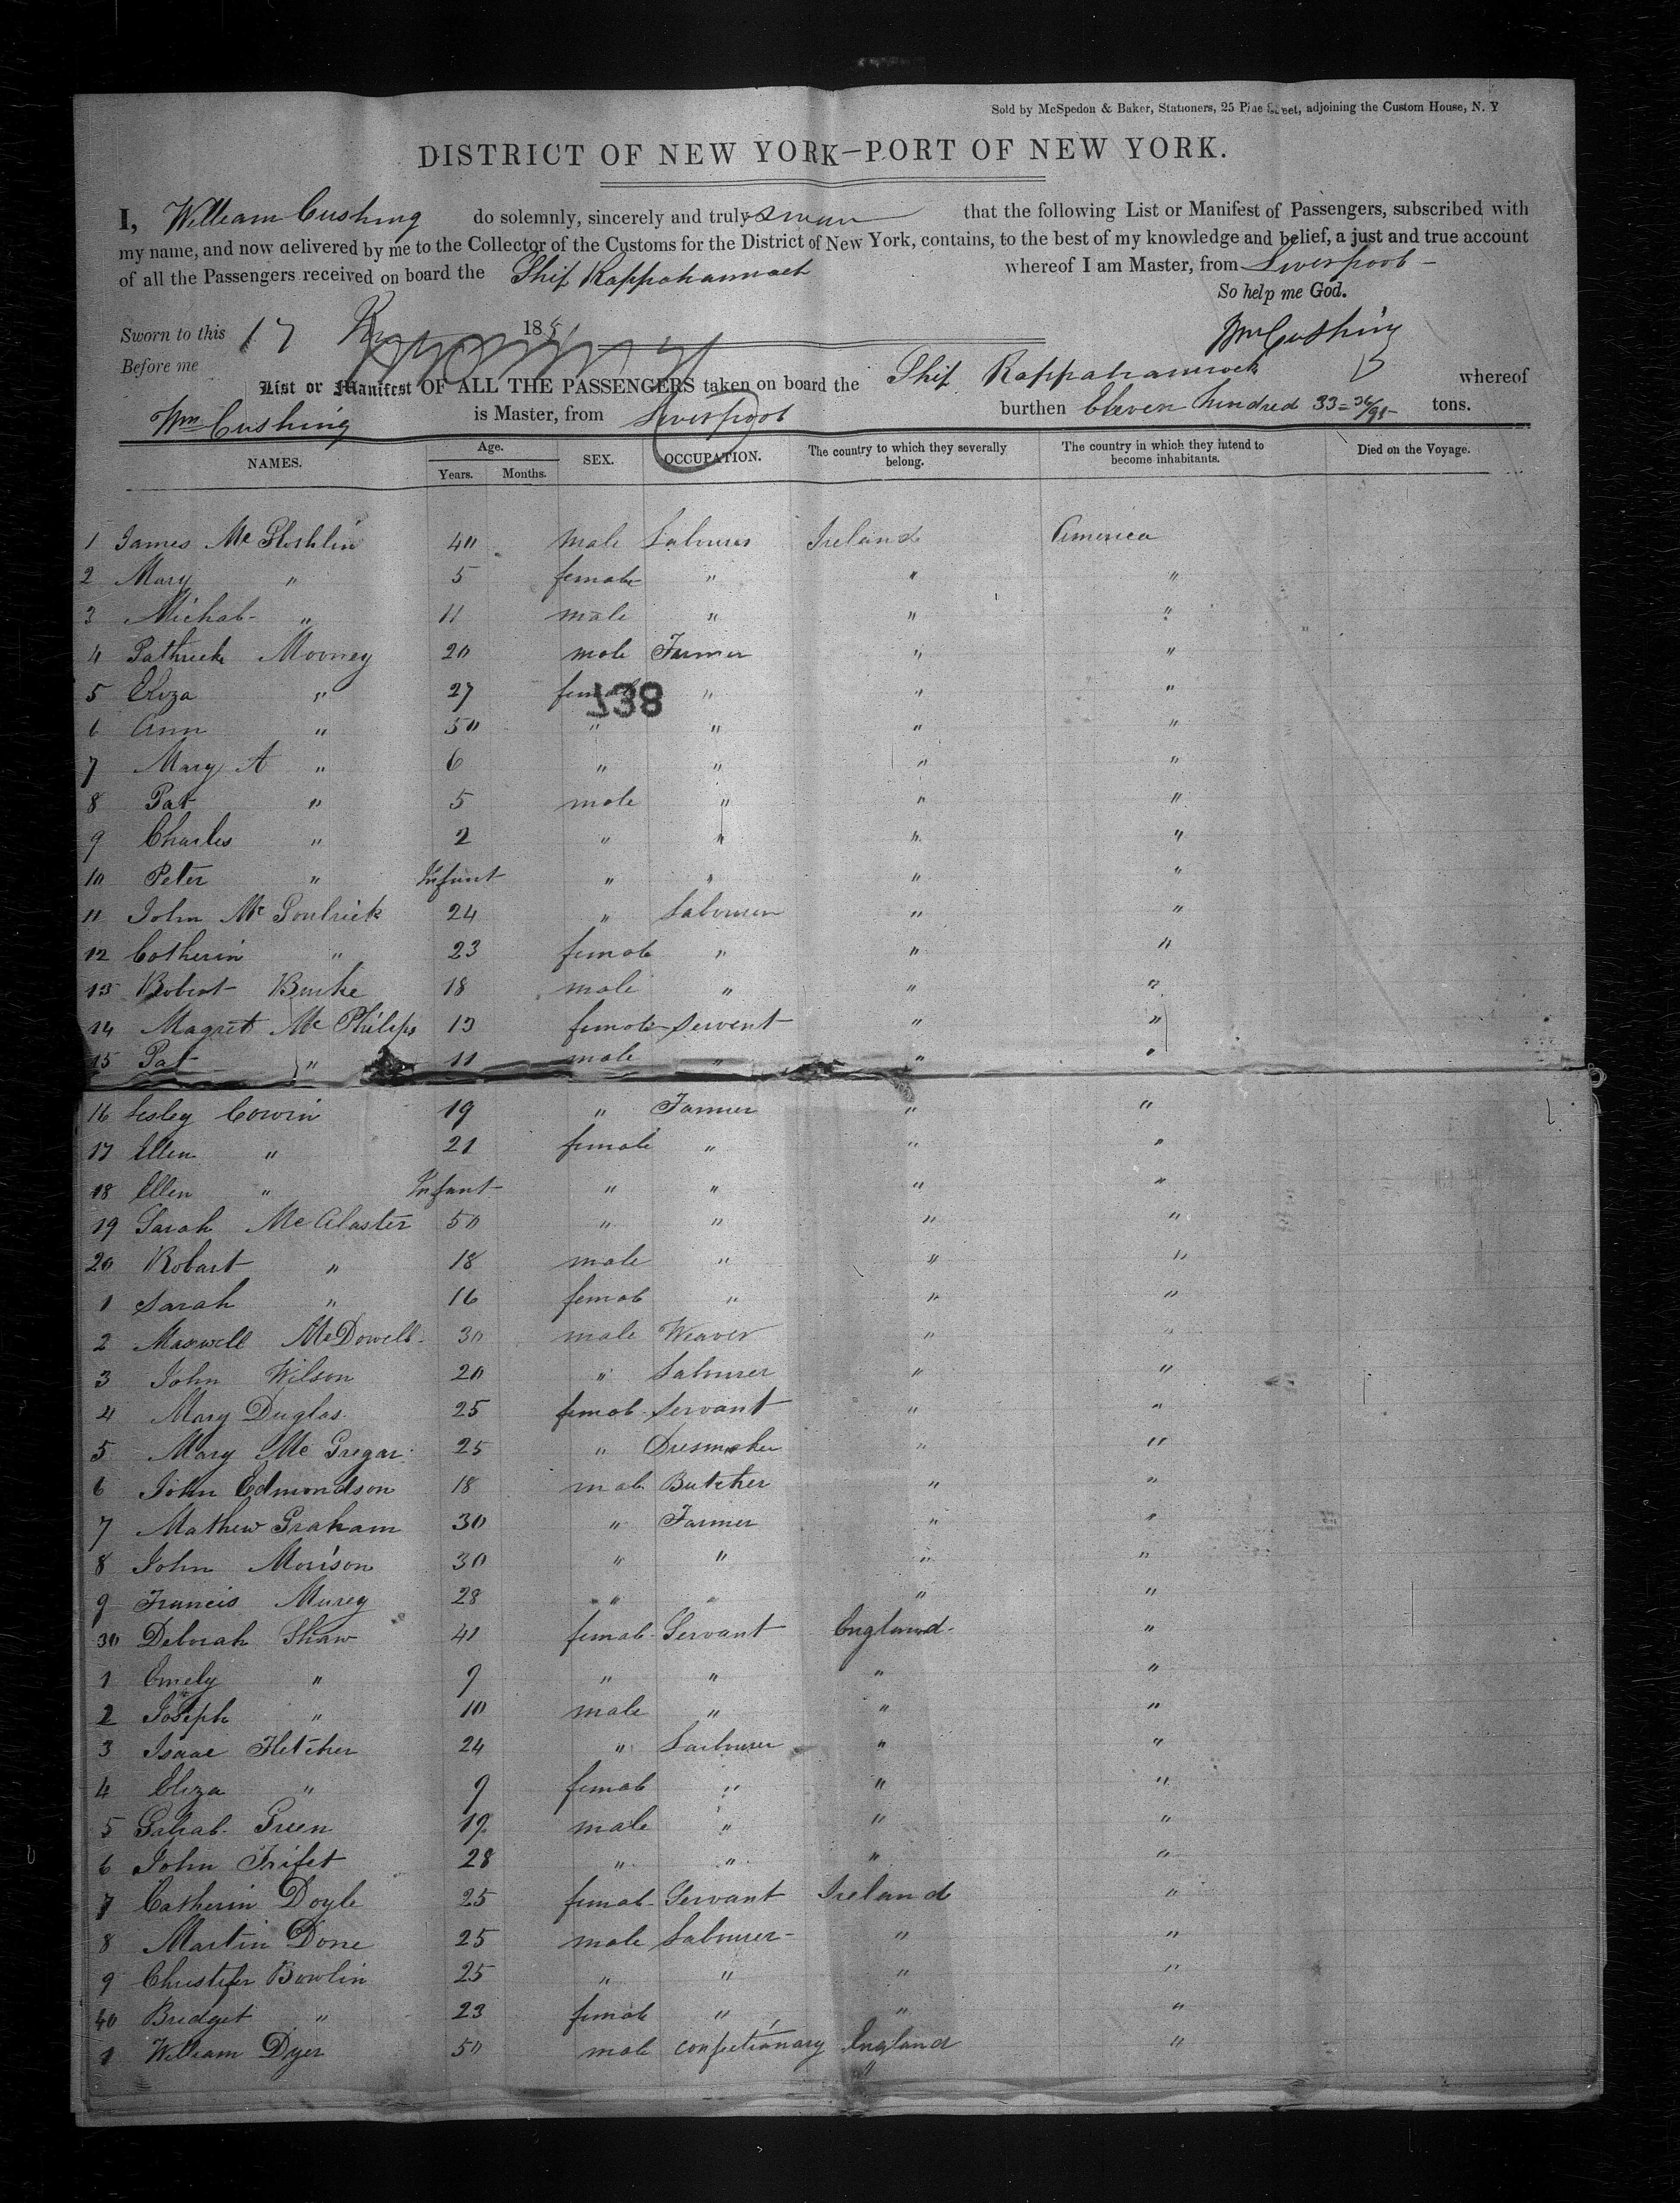 Sold by McSpedon & Baker, Stationers, 25 Pine Street, adjoining the Custom House, N. Y
DISTRICT OF NEW YORK—PORT OF NEW YORK.
I, William Cushing do solemnly, sincerely and truly swear that the following List or Manifest of Passengers, subscribed with
my name, and now delivered by me to the Collector of the Customs for the District of New York, contains, to the best of my knowledge and belief, a just and true account
of all the Passengers received on board the Ship Rappahannock whereof I am Master, from Liverpool
So help me God.
Sworn to this 17 185
Wm Cushing
Before me
List or Manifest OF ALL THE PASSENGERS taken on board the Ship Rappahannock whereof
Wm Cushing is Master, from Liverpool burthen Eleven hundred 33 = 26/95 tons.
NAMES. Age. Years. Months. SEX. OCCUPATION. The country to which they severally belong. The country in which they intend to become inhabitants. Died on the Voyage.
1 James Mc 40 male Labourer Ireland America
2 Mary " 5 female " " "
3 Michal " 11 male " " "
4 Pathrick Mooney 20 male Farmer " "
5 Eliza " 27 female " " "
738
6 Ann " 50 " " " "
7 Mary A " 6 " " " "
8 Pat " 5 male " " "
9 Charles " 2 " " " "
10 Peter " Infant " " " "
11 John Mc 24 " Labourer " "
12 Catherin " 23 female " " "
13 Robert Burke 18 male " " "
14 Magret Mc Philips 13 female servent " "
15 Pat " 11 male " " "
16 Lesley Cowin 19 " Farmer " "
17 Ellen " 21 female " " "
18 Ellen " Infant " " " "
19 Sarah McAlaster 50 " " " "
20 Robart " 18 male " " "
1 Sarah " 16 female " " "
2 Maxwell McDowell 30 male Weaver " "
3 John Wilson 20 " Labourer " "
4 Mary Duglas 25 female servant " "
5 Mary Mc Gregar 25 " Dresmaker " "
6 John Edmondson 18 male Butcher " "
7 Mathew Graham 30 " Farmer " "
8 John Morison 30 " " " "
9 Francis Murey 28 " " " "
30 Deborah Shaw 41 female Servant England "
1 Emely " 9 " " " "
2 Joseph " 10 male " " "
3 Isaac Fletcher 24 " Laibourer " "
4 Eliza " 9 female " " "
5 Green 19 male " " "
6 John Trifet 28 " " " "
7 Catherin Doyle 25 female Servant Ireland "
8 Martin Done 25 male Labourer " "
9 Christifer Bowlin 25 " " " "
40 Bridget " 23 female " " "
1 William Dyer 50 male confectionary England "
"